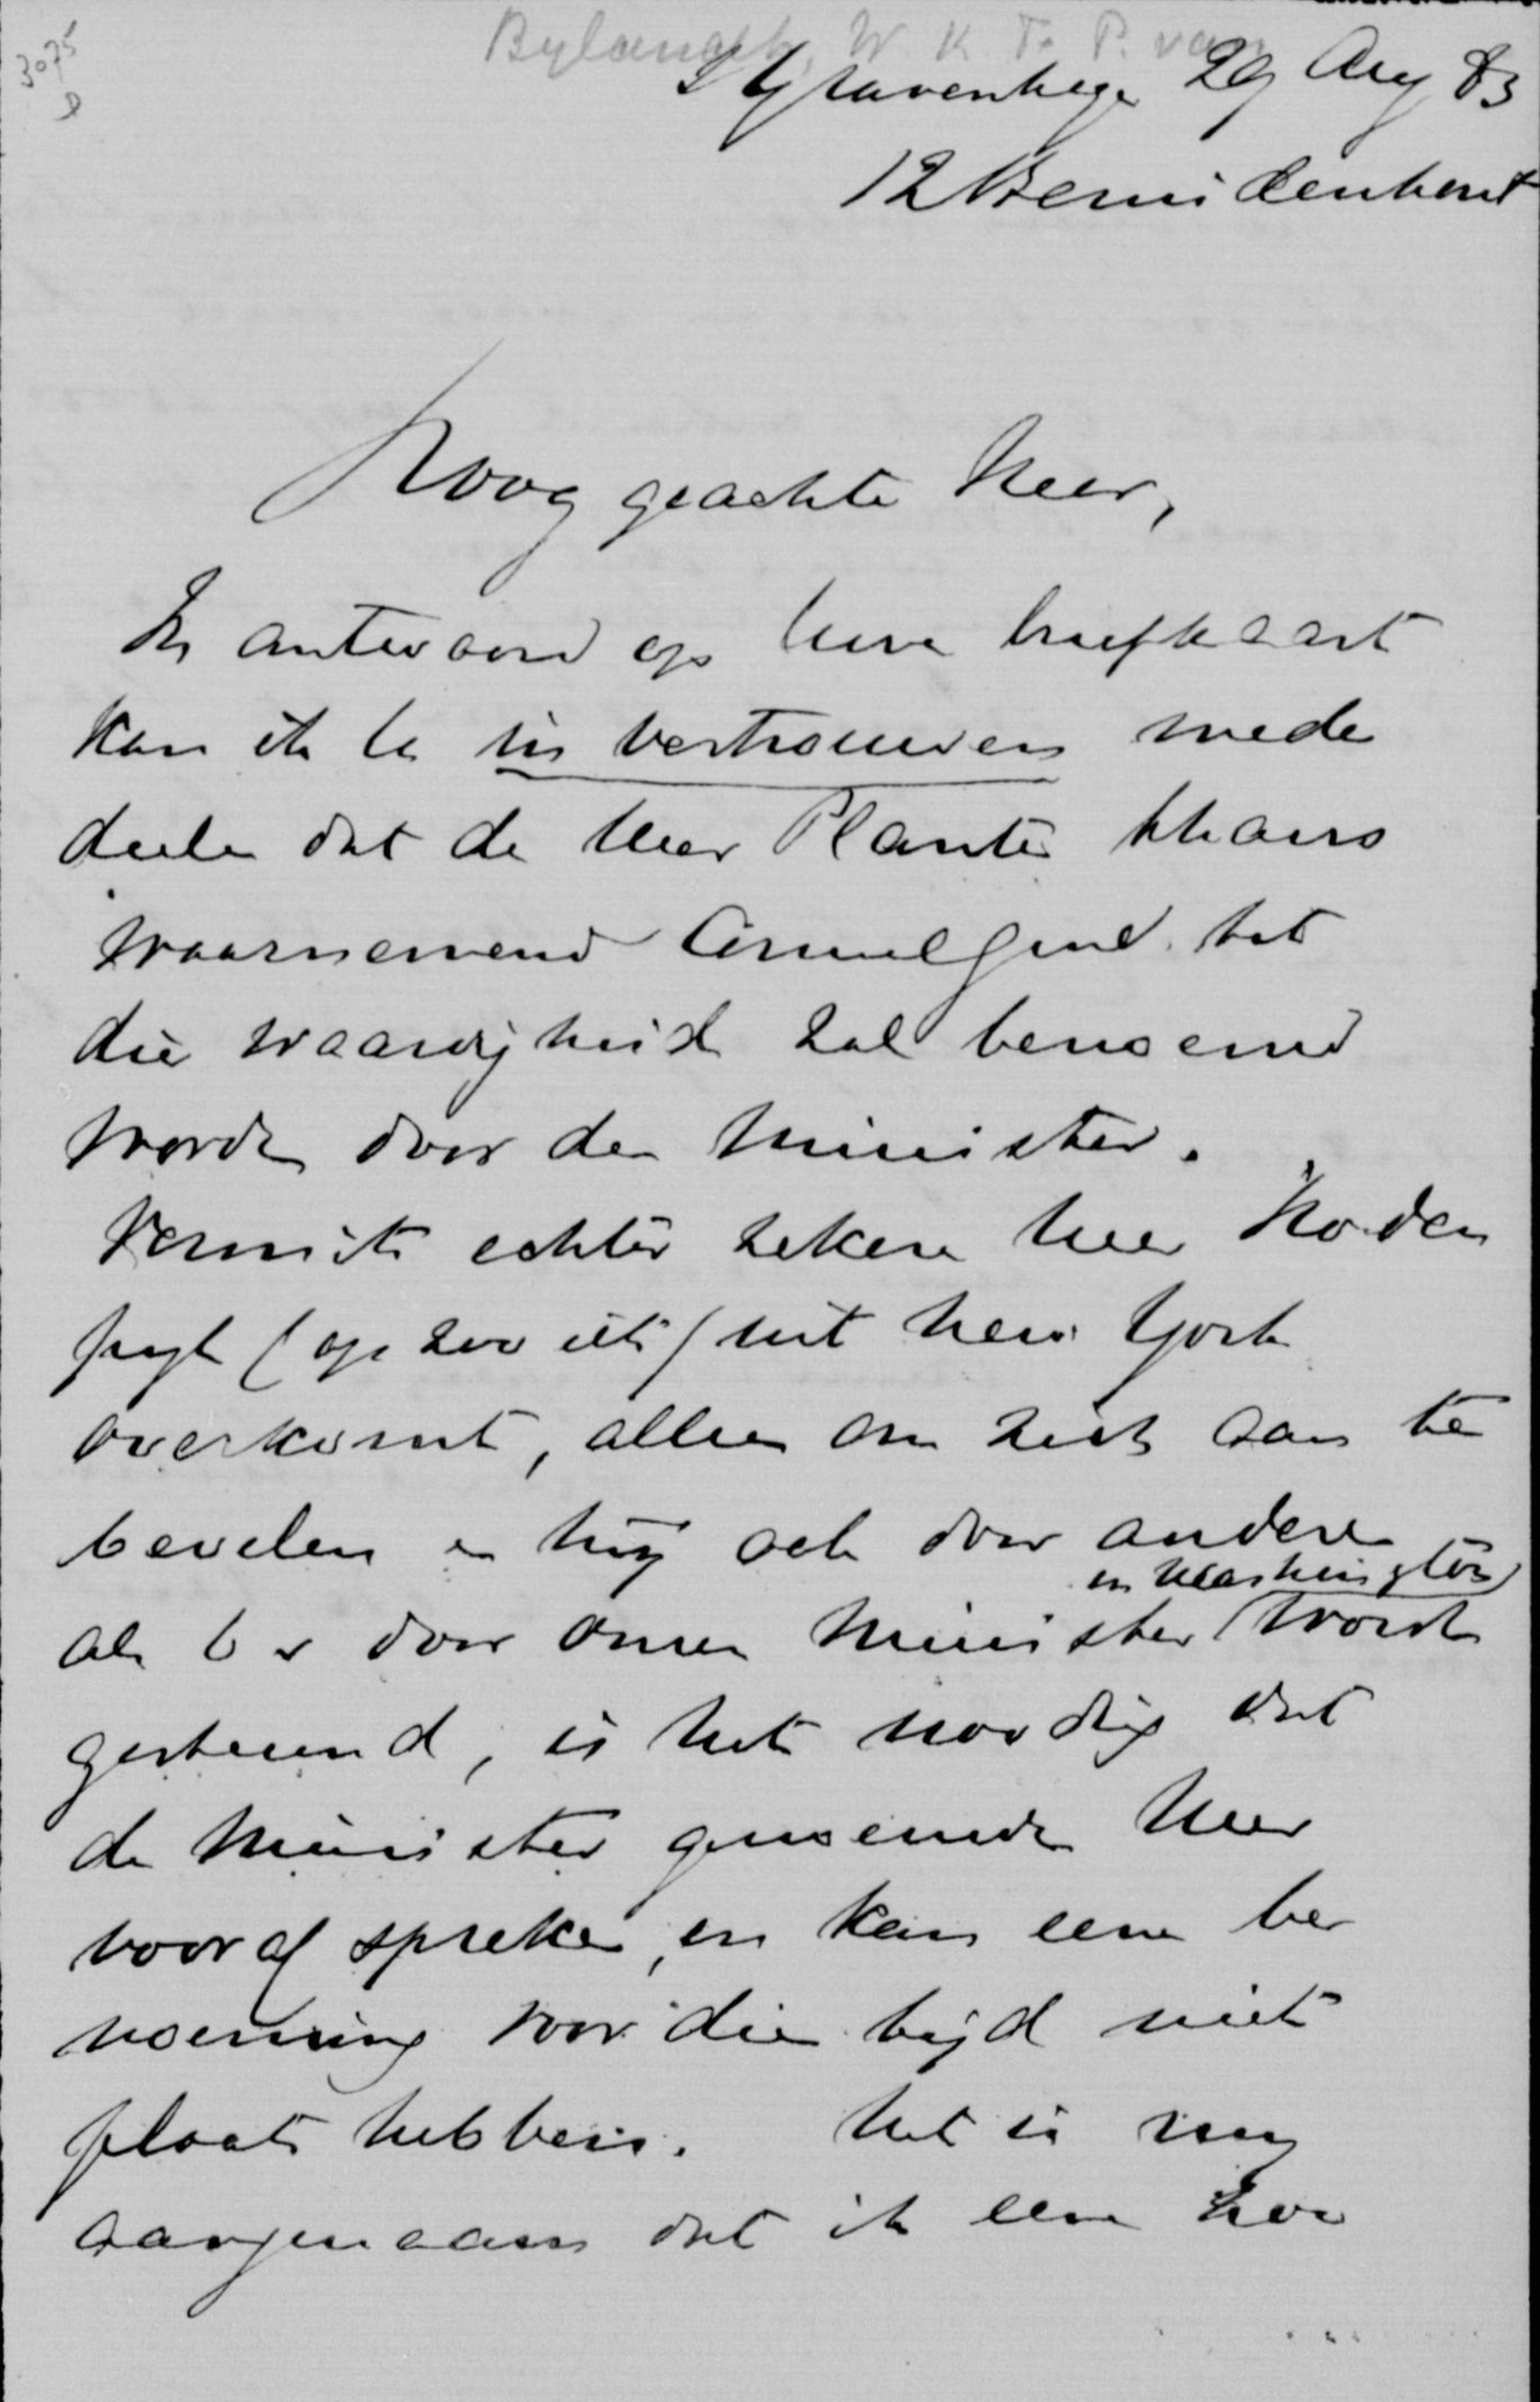 3075
8
Bylandt, W. K. F. P. van
's Gravenhage 29 Aug 83
12 Bezuidenhout
Hoog geachte Heer,
In antwoord op uwe briefkaart
kan ik U in vertrouwen mede
deelen dat de Heer Planten thans
waarnemend Consul Genl. tot
die waardigheid zal benoemd
worden door den Minister.
Vermits echter zekere Heer
(op zoo iets) uit New York
overkomt, alleen om zich aan te
bevelen en hij ook door andere
in Washington
als b v door onzen Minister wordt
gesteund, is het noodig dat
de Minister genoemden Heer
vooraf spreke, en kan eene be
noeming voor dien tijd niet
plaats hebben. Het is my
aangenaam dat ik eene zoo